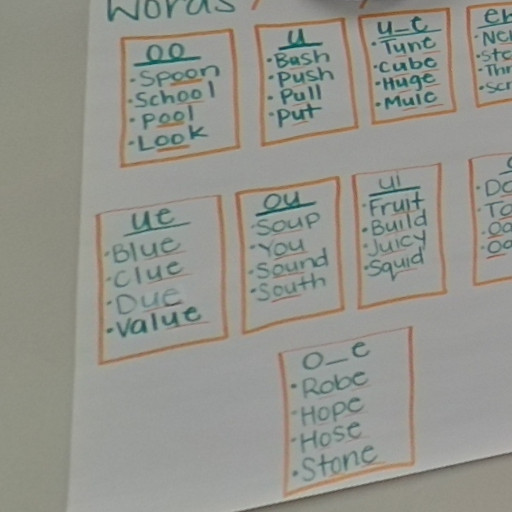 Words
oo
·Spoon
·School
·Pool
·Look
u
·Bash
·Push
·Pull
·Put
u_e
·Tune
·Cube
·Huge
·Mule
ue
·Blue
·Clue
·Due
·Value
ou
·Soup
·You
·Sound
·South
ui
·Fruit
·Build
·Juicy
·Squid
o_e
·Robe
·Hope
·Hose
·Stone